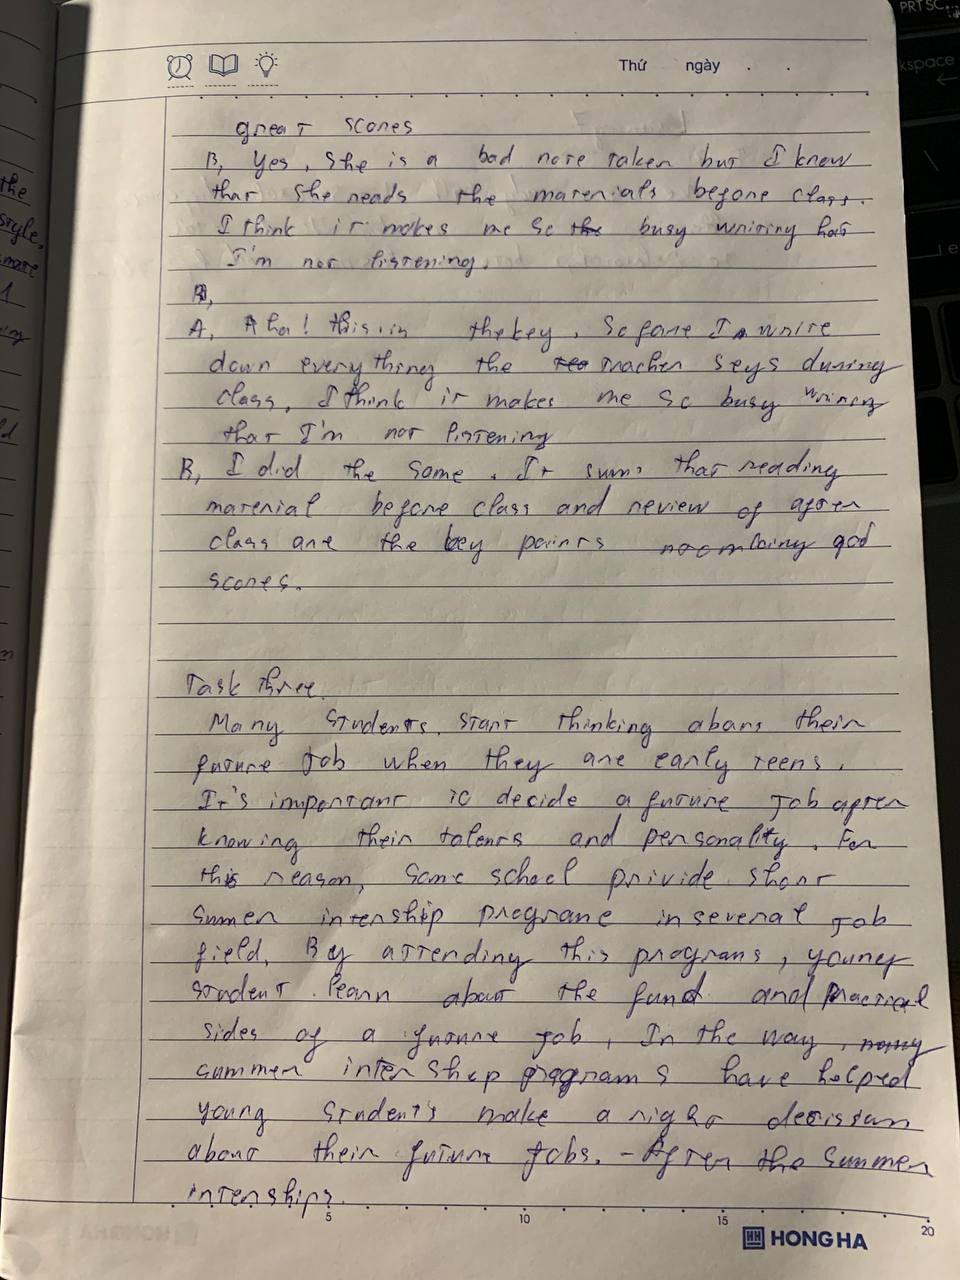 PRTSC
kspace
Thứ ngày . .
great scores
B, Yes, she is a bad note taken but I knew
that she reads the materials before class.
I think it makes me so the busy writing hat
I'm not listening.
B,
A, Aha! this is the key. So fone I write
down everything the tea teacher seys during
class, I think it makes me so busy writing
that I'm not listening
B, I did the same. It sums that reading
material before class and review of after
class are the key points god
scores.
Task three.
Many students start thinking about their
future job when they are early teens.
It's important to decide a future job after
knowing their talents and personality. For
this reason, some school privide short
summer intership programe in several job
field. By attending this programs, young
student learn about the fund and practical
sides of a future job, In the way, many
summer intership programs have helped
young students make a right decission
about their future jobs. - After the summer
interships.
5 10 15 20
HH HONG HA
the
style,
more